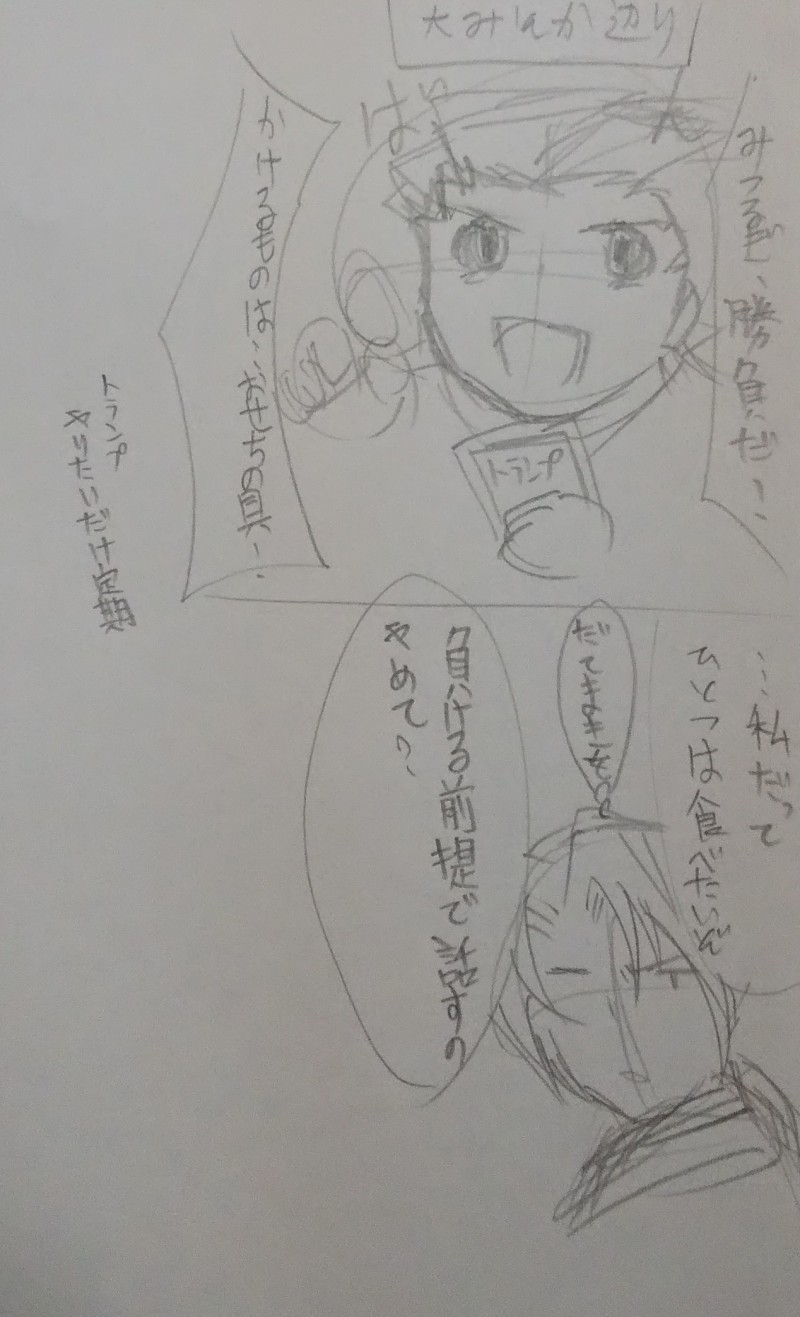 大みそか辺り
みつるぎ、勝負だ！
ばっ
トランプ
かけるものは…おもちの具！
トランプ
やりたいだけ定期
…私だって
ひとつは食べたいぞ
負ける前提で話すの
やめて？